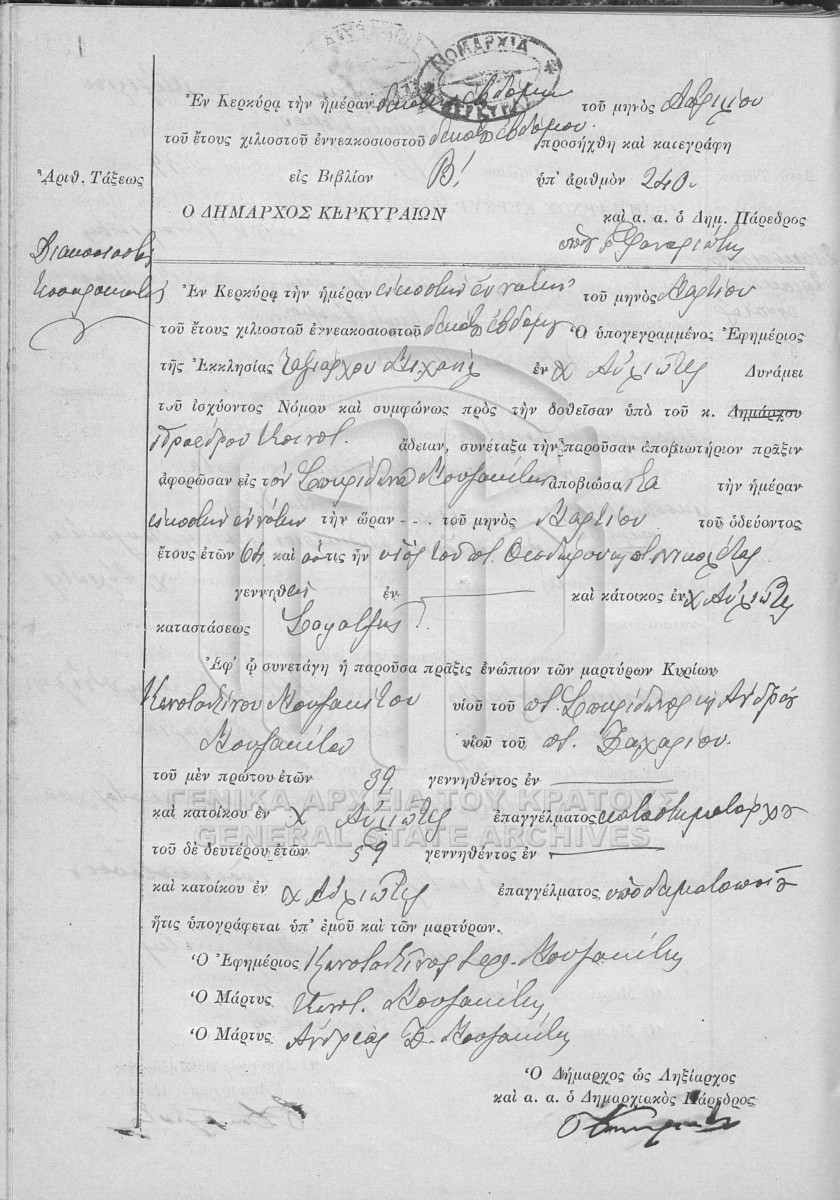 ΝΟΜΑΡΧΙΑ ΚΕΡΚΥΡΑΣ
Ἐν Κερκύρᾳ τὴν ἡμέραν δεκάτην ἑβδόμην τοῦ μηνὸς Ἀπριλίου
τοῦ ἔτους χιλιοστοῦ ἐννεακοσιοστοῦ δεκάτου ἑβδόμου προσήχθη καὶ κατεγράφη
Ἀριθ. Τάξεως
εἰς Βιβλίον Β! ὑπ' ἀριθμὸν 240.
Ο ΔΗΜΑΡΧΟΣ ΚΕΡΚΥΡΑΙΩΝ καὶ α. α. ὁ Δημ. Πάρεδρος
Διακοσιοστὴ
τεσσαρακοστὴ
Ἐν Κερκύρᾳ τὴν ἡμέραν εἰκοστὴν ἐννάτην τοῦ μηνὸς Μαρτίου
τοῦ ἔτους χιλιοστοῦ ἐννεακοσιοστοῦ δεκάτου ἑβδόμου Ὁ ὑπογεγραμμένος Ἐφημέριος
τῆς Ἐκκλησίας Ταξιάρχου Μιχαὴλ ἐν χ Αὐλιώτες Δυνάμει
τοῦ ἰσχύοντος Νόμου καὶ συμφώνως πρὸς τὴν δοθεῖσαν ὑπὸ τοῦ κ. Δημάρχου
Προέδρου Κοινοτ. ἄδειαν, συνέταξα τὴν παροῦσαν ἀποβιωτήριον πρᾶξιν
ἀφορῶσαν εἰς τὸν Σπυρίδωνα Μουζακίτην ἀποβιώσαντα τὴν ἡμέραν
εἰκοστὴν ἐννάτην τὴν ὥραν - - . τοῦ μηνὸς Μαρτίου τοῦ ὁδεύοντος
ἔτους ἐτῶν καὶ ὅστις ἦν υἱὸς τοῦ ποτ. Θεοδώρου
γεννηθεὶς ἐν — καὶ κάτοικος ἐν χ Αὐλιώτες
καταστάσεως
Ἐφ' ᾧ συνετάγη ἡ παροῦσα πρᾶξις ἐνώπιον τῶν μαρτύρων Κυρίων
Κωνσταντίνου Μουζακίτου υἱοῦ τοῦ ποτ. Σπυρίδωνος καὶ Ἀνδρέου
Μουζακίτου υἱοῦ τοῦ ποτ. Ζαχαρίου.
τοῦ μὲν πρώτου ἐτῶν 39 γεννηθέντος ἐν —
καὶ κατοίκου ἐν χ Αὐλιώτες ἐπαγγέλματος καταστηματάρχου
ΓΕΝΙΚΑ ΑΡΧΕΙΑ ΤΟΥ ΚΡΑΤΟΥΣ
GENERAL STATE ARCHIVES
τοῦ δὲ δευτέρου ἐτῶν 59 γεννηθέντος ἐν —
καὶ κατοίκου ἐν χ Αὐλιώτες ἐπαγγέλματος ὑποδηματοποιοῦ
ἥτις ὑπογράφεται ὑπ' ἐμοῦ καὶ τῶν μαρτύρων.
Ὁ Ἐφημέριος Κωνσταντῖνος Ἱερ. Μουζακίτης
Ὁ Μάρτυς Κωνστ. Μουζακίτης
Ὁ Μάρτυς Ἀνδρέας Ζ. Μουζακίτης
Ὁ Δήμαρχος ὡς Ληξίαρχος
καὶ α. α. ὁ Δημαρχιακὸς Πάρεδρος